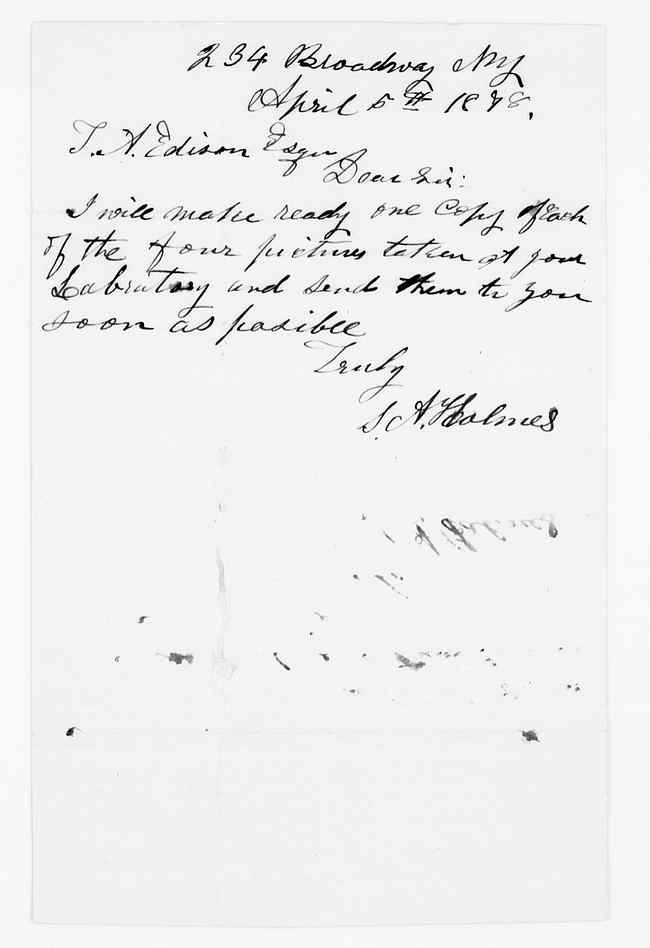 234 Broadway NY
April 5th 1878.
T. A. Edison Esqr
Dear Sir:
I will make ready one Copy of each
of the four pictures taken at your
Labratory and send them to you
soon as posible
Truly
S. A. Holmes